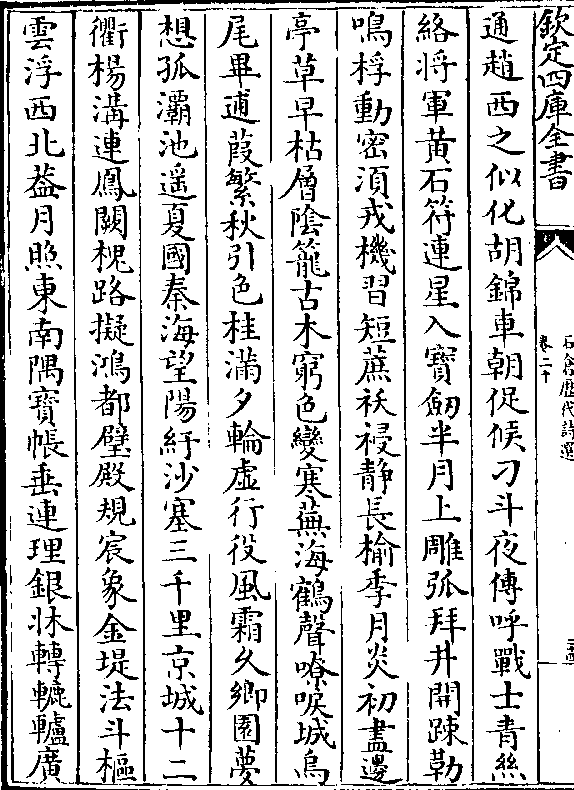 欽定四庫全書
石倉歴代詩選
卷二十
通趙西之似化胡錦車朝促候刁斗夜傳呼戰士青絲
絡將軍黄石符連星入寳劔半月上雕弧拜井開踈勒
鳴桴動密湏戎機習短蔗祅祲静長榆季月炎初盡邊
亭草早枯層陰籠古木窮色變寒蕪海鶴聲嘹唳城烏
尾畢逋葭繁秋引色桂滿夕輪虚行役風霜久鄉園夢
想孤灞池遥夏國秦海望陽紆沙塞三千里京城十二
衢楊溝連鳳闕槐路擬鴻都璧殿規宸象金堤法斗樞
雲浮西北葢月照東南隅寳帳垂連理銀牀轉轆轤廣